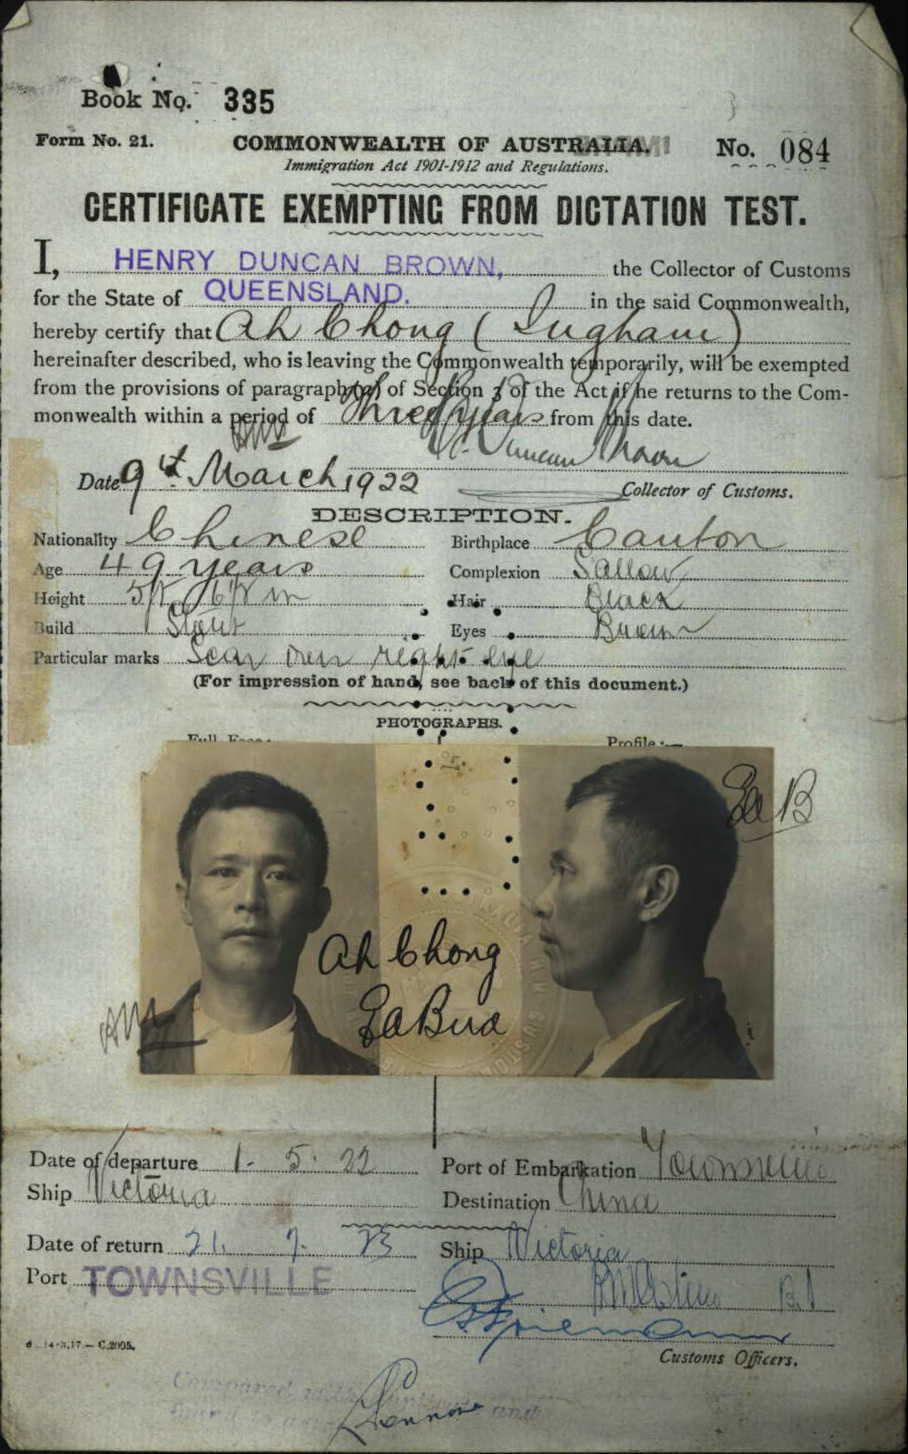 Book No. 335
Form No. 21. COMMONWEALTH OF AUSTRALIA. No. 084
Immigration Act 1901-1912 and Regulations.
CERTIFICATE EXEMPTING FROM DICTATION TEST.
I, HENRY DUNCAN BROWN, the Collector of Customs
for the State of QUEENSLAND. in the said Commonwealth,
hereby certify that Ah Chong (Ingham)
hereinafter described, who is leaving the Commonwealth temporarily, will be exempted
from the provisions of paragraph (a) of Section 3 of the Act if he returns to the Com-
monwealth within a period of Three years from this date.
H. Duncan Brown
Date 9th March 1922 Collector of Customs.
DESCRIPTION.
Nationality Chinese Birthplace Canton
Age 49 years Complexion Sallow
Height 5ft 6 in Hair Black
Build Stout Eyes Brown
Particular marks Scar over right eye
(For impression of hand, see back of this document.)
PHOTOGRAPHS.
Full Face:— Profile:—
Ah Chong
Date of departure 1. 5. 22 Port of Embarkation Townsville
Ship Victoria Destination China
Date of return 21. 7. 23 Ship Victoria
Port TOWNSVILLE
Customs Officers.
C.2005.
Compared with